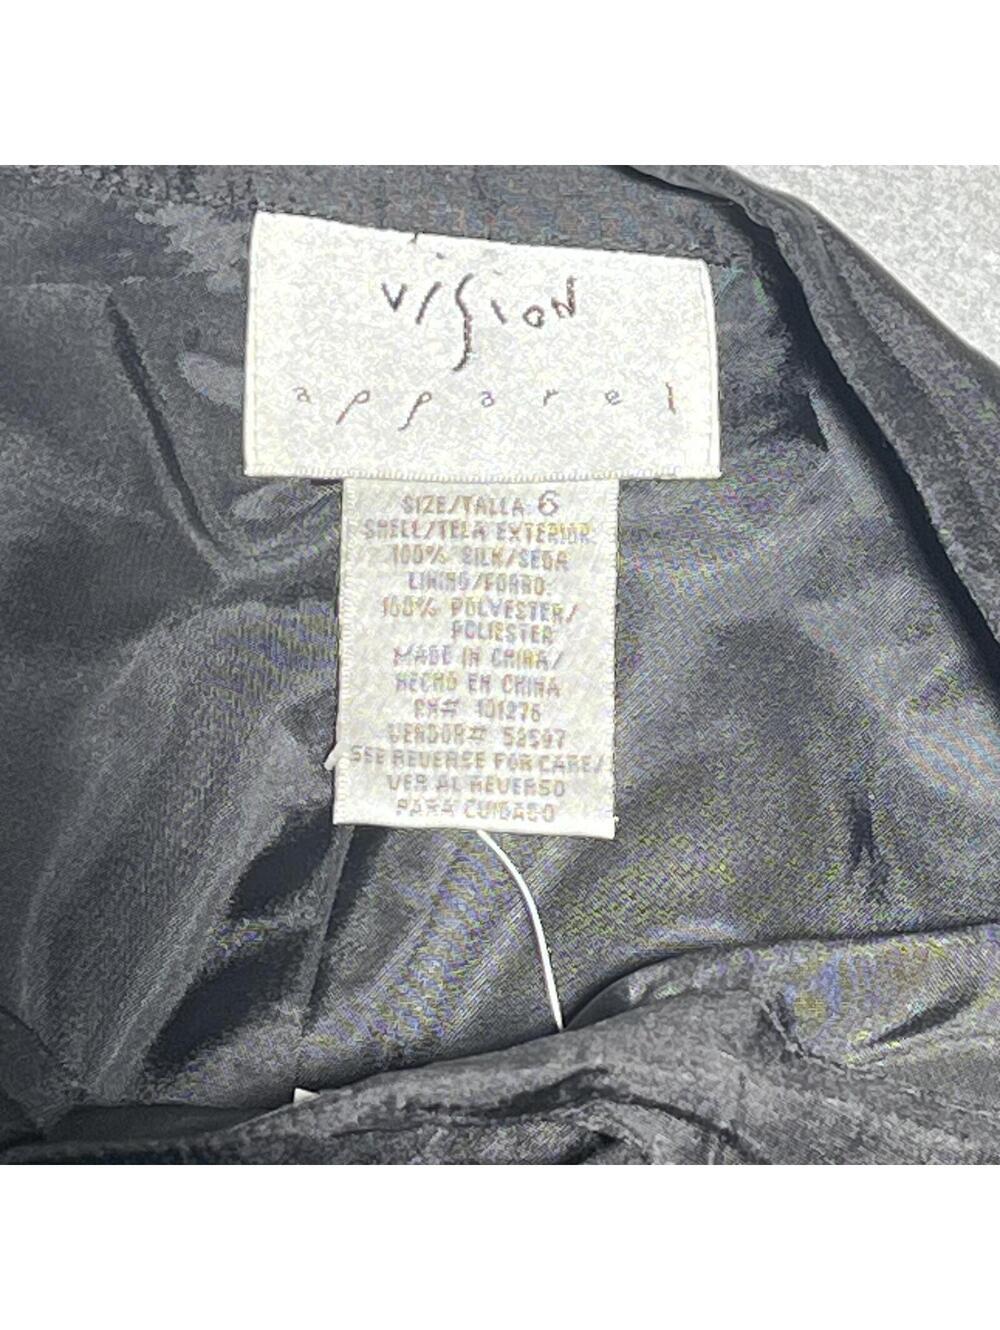 vision
apparel
SIZE/TALLA 6
SHELL/TELA EXTERIOR
100% SILK/SEDA
LINING/FORRO:
100% POLYESTER/
POLIESTER
MADE IN CHINA/
HECHO EN CHINA
RN# 101276
VENDOR# 53597
SEE REVERSE FOR CARE/
VER AL REVERSO
PARA CUIDADO